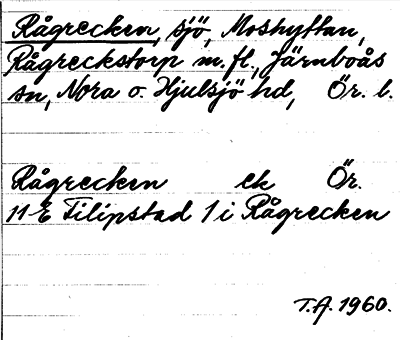 Rågrecken, sjö, Moshyttan,
Rågreckstorp m. fl., Järnboås
sn, Nora o. Hjulsjö hd, Ör. l.
Rågrecken ek Ör.
11 E Filipstad 1 i Rågrecken
T.A. 1960.